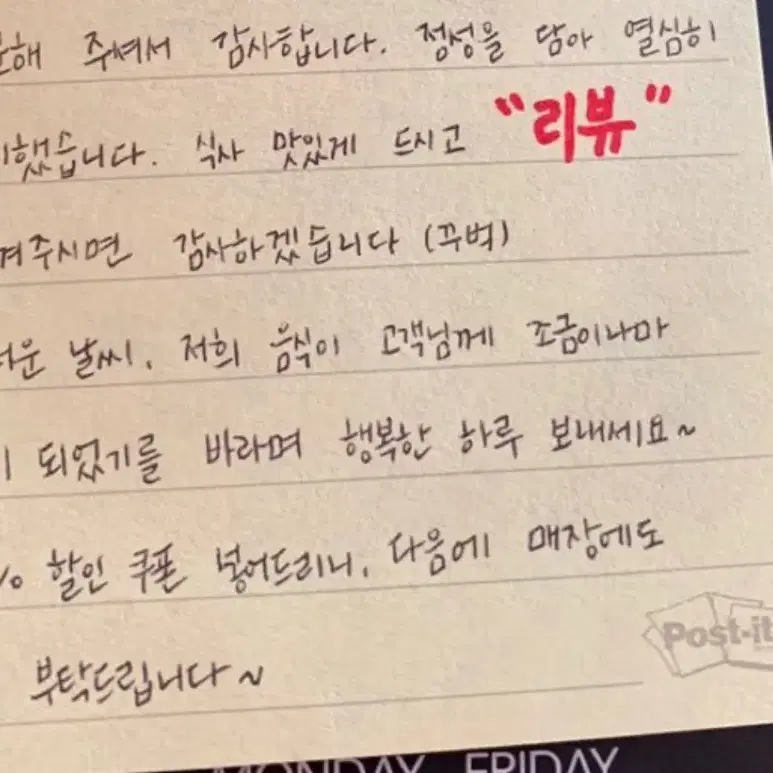 해 주셔서 감사합니다. 정성을 담아 열심히
했습니다. 식사 맛있게 드시고 "리뷰"
겨주시면 감사하겠습니다 (꾸벅)
운 날씨, 저희 음식이 고객님께 조금이나마
이 되었기를 바라며 행복한 하루 보내세요~
% 할인 쿠폰 넣어드리니, 다음에 매장에도
부탁드립니다~
Post-it
MONDAY FRIDAY